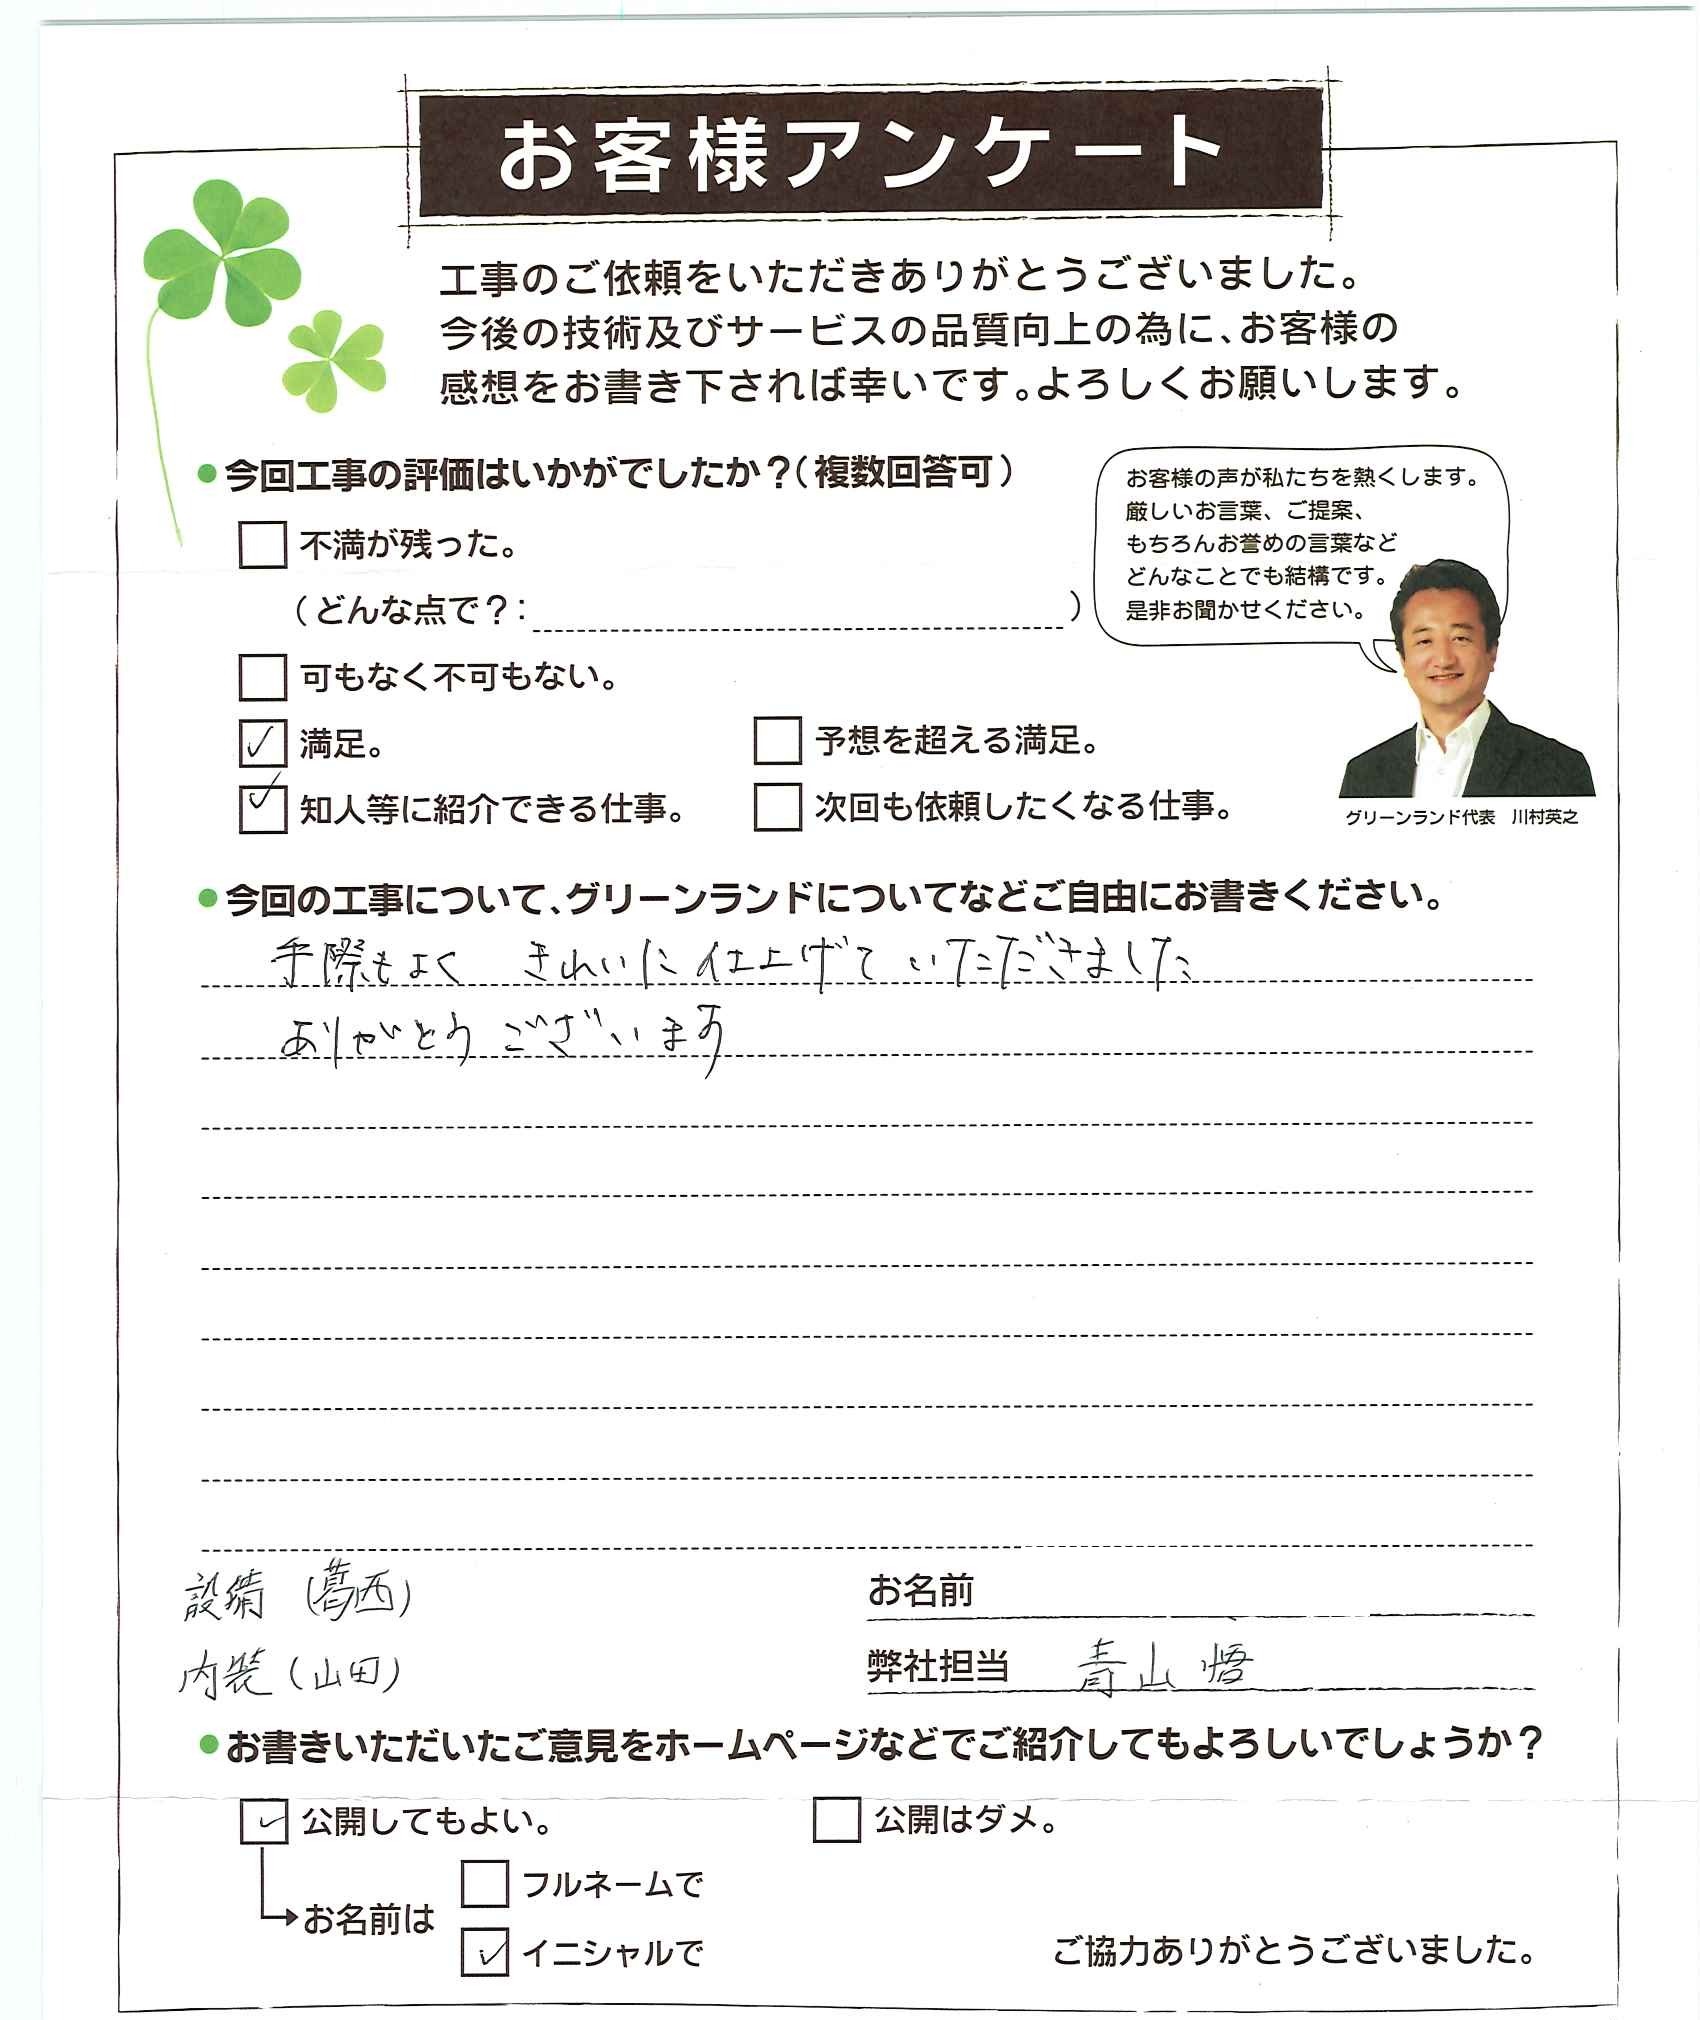 お客様アンケート
工事のご依頼をいただきありがとうございました。
今後の技術及びサービスの品質向上の為に、お客様の
感想をお書き下されば幸いです。よろしくお願いします。
●今回工事の評価はいかがでしたか？（複数回答可）
お客様の声が私たちを熱くします。
厳しいお言葉、ご提案、
もちろんお誉めの言葉など
どんなことでも結構です。
是非お聞かせください。
不満が残った。
（どんな点で？：）
可もなく不可もない。
満足。
予想を超える満足。
知人等に紹介できる仕事。
次回も依頼したくなる仕事。
グリーンランド代表　川村英之
●今回の工事について、グリーンランドについてなどご自由にお書きください。
手際もよく　きれいに仕上げていただきました
ありがとうございます
設備（葛西）
お名前
内装（山田）
弊社担当　青山 悟
●お書きいただいたご意見をホームページなどでご紹介してもよろしいでしょうか？
公開してもよい。
公開はダメ。
フルネームで
お名前は
イニシャルで
ご協力ありがとうございました。